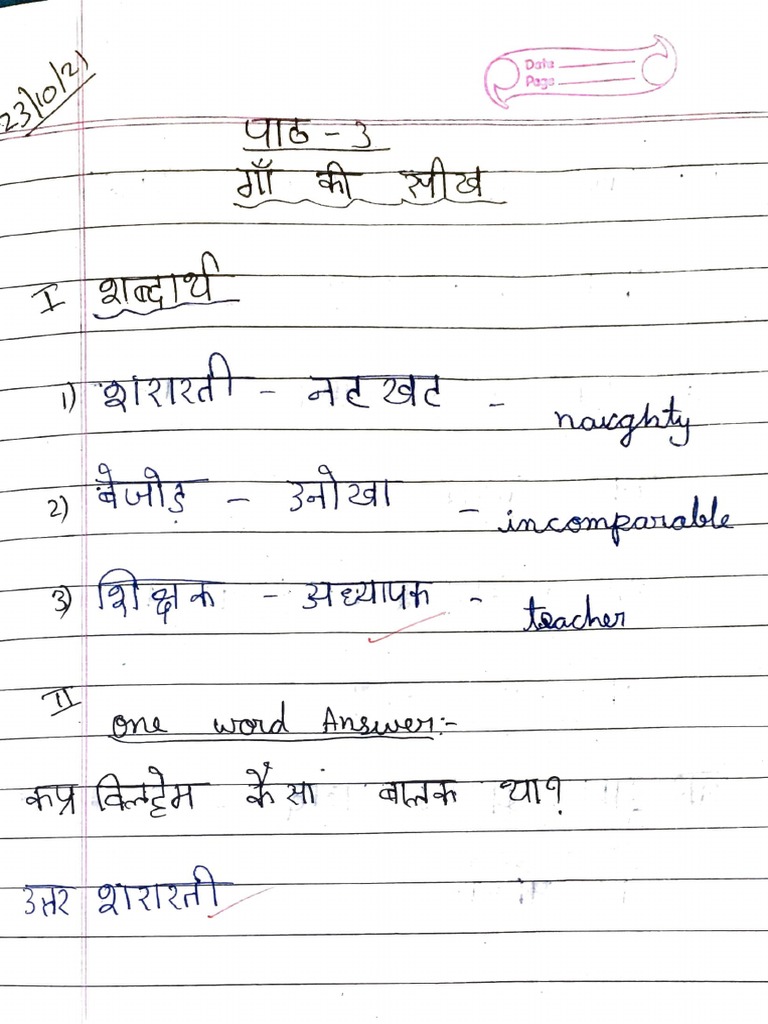 23/10/21
Date
Page
पाठ - 3
माँ की सीख
I शब्दार्थ
1) शरारती - नटखट - naughty
2) बेजोड़ - अनोखा - incomparable
3) शिक्षक - अध्यापक - teacher
II
One word Answer:-
कप्र विल्हेम कैसा बालक था?
उत्तर शरारती